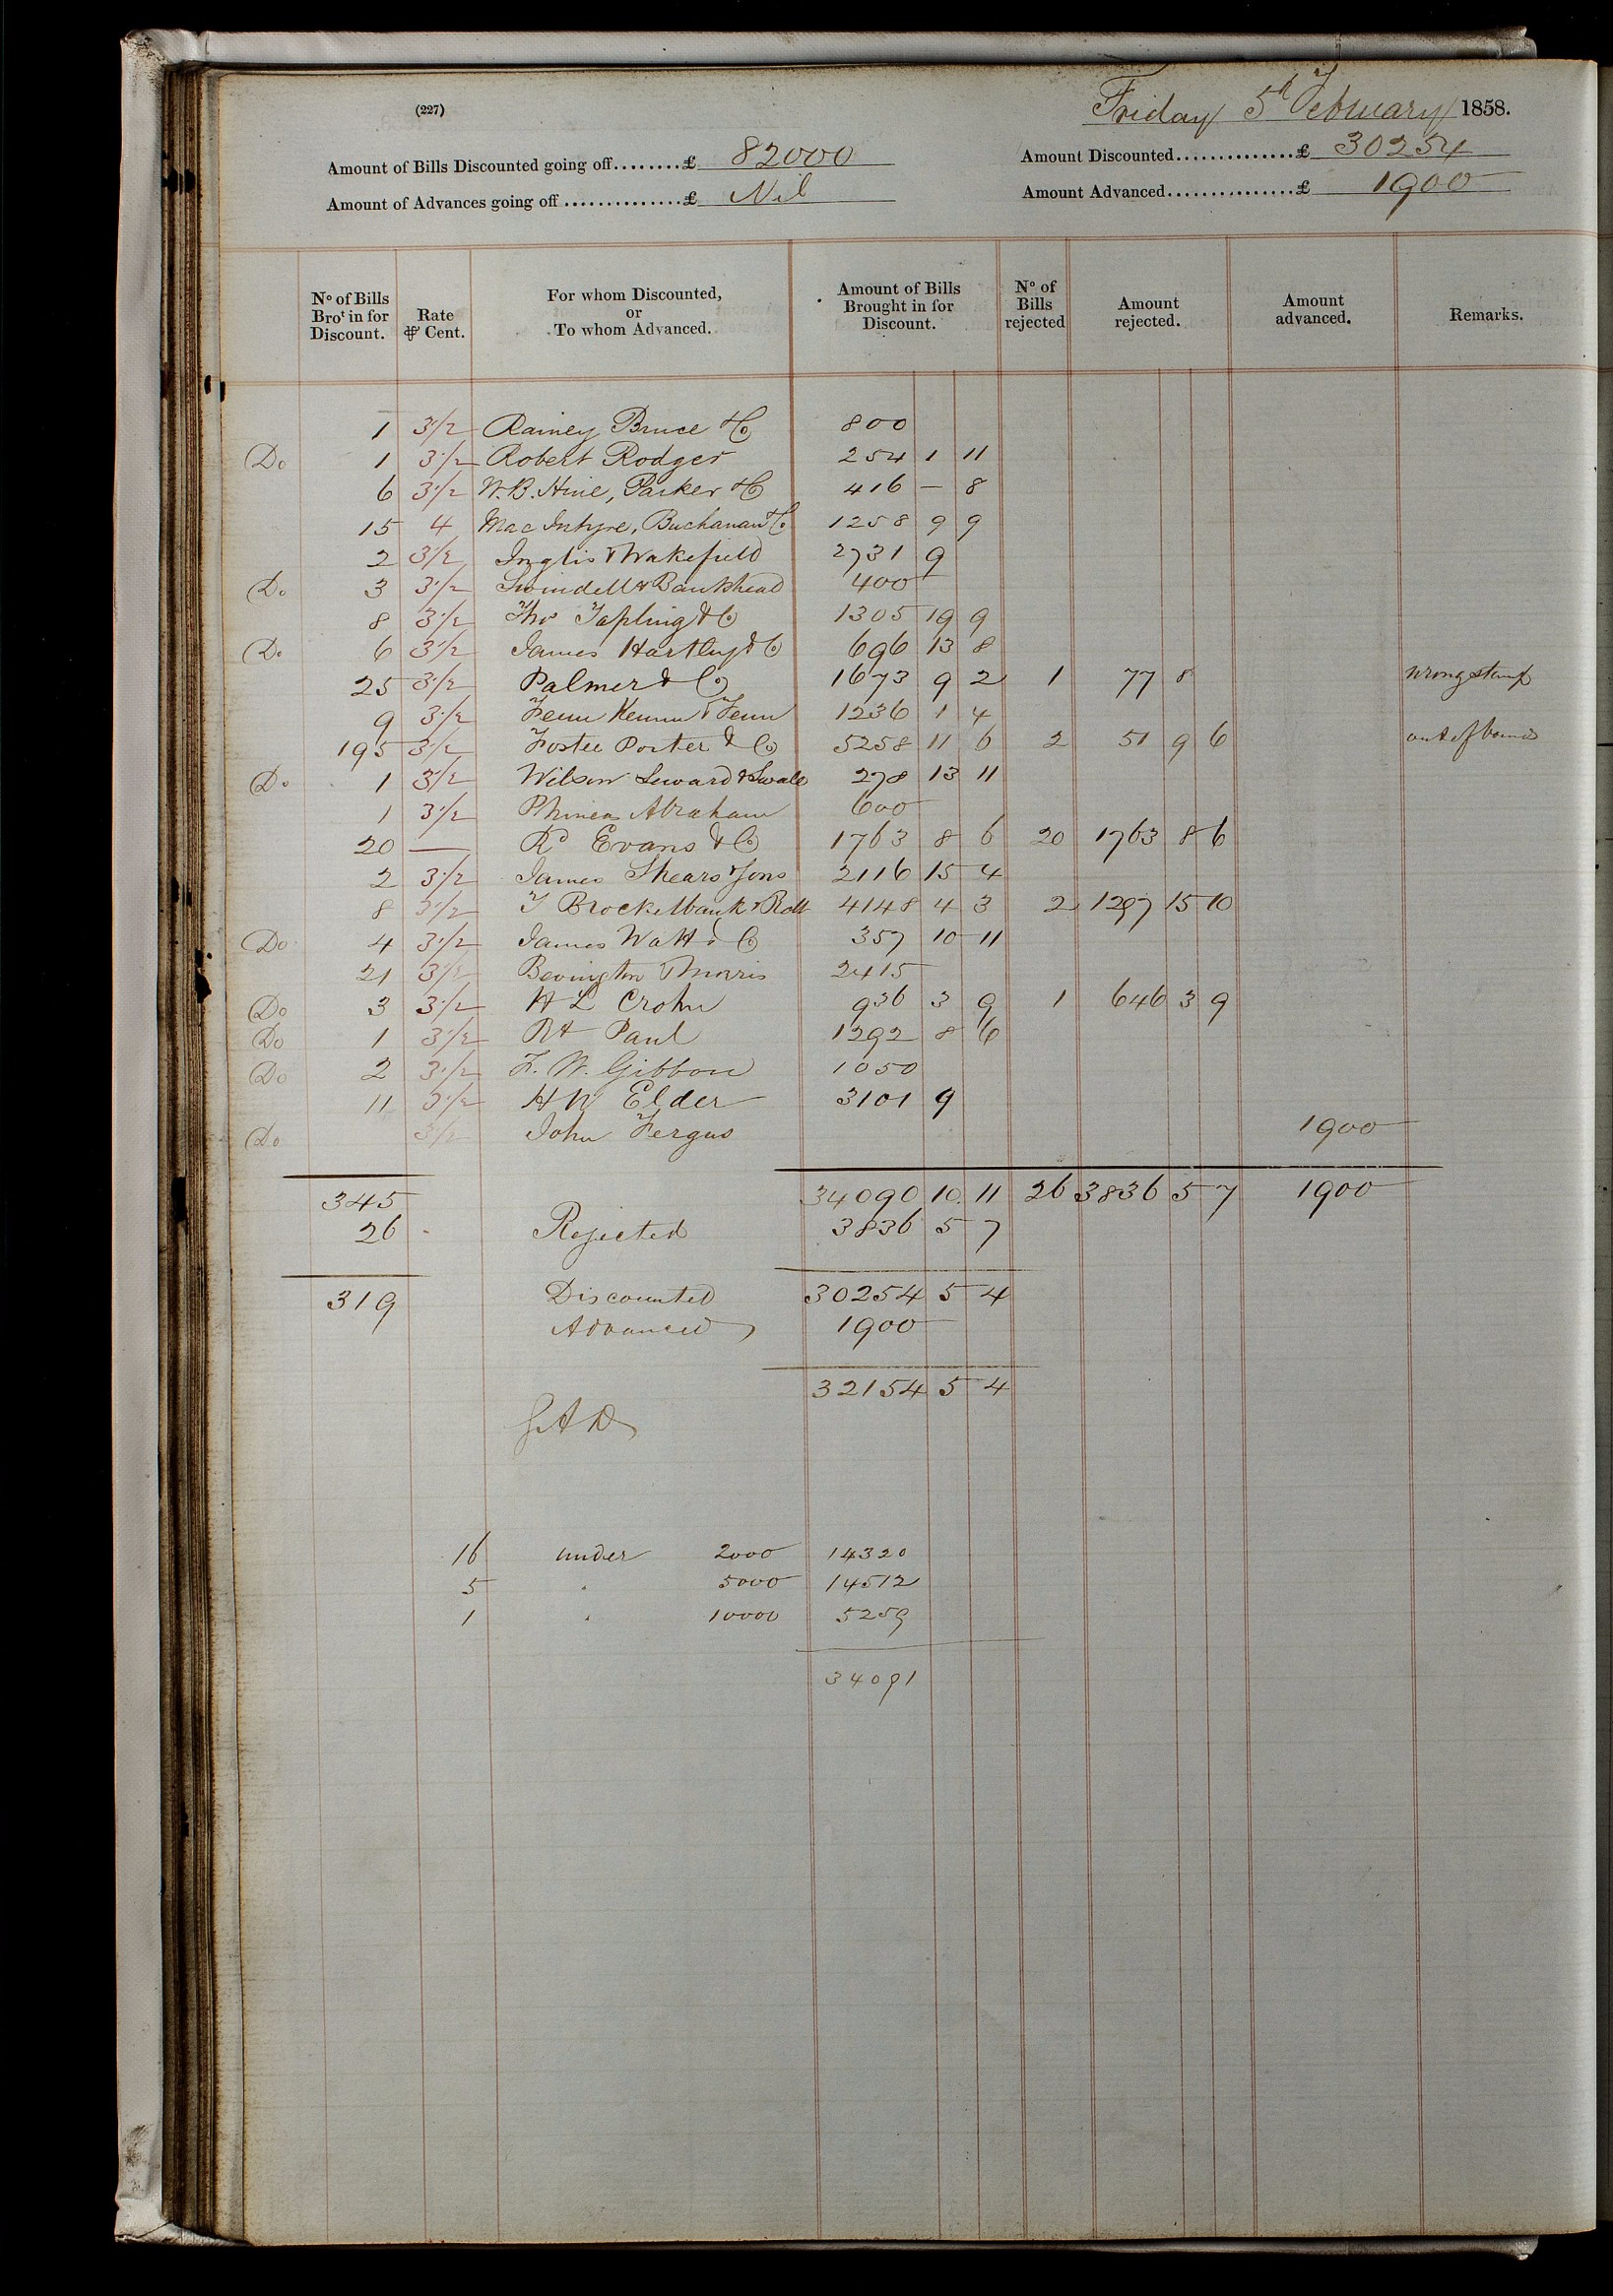 (227)
Friday 5th February 1858.
Amount of Bills Discounted going off........£ 82000
Amount Discounted..............£ 30254
Amount of Advances going off..............£ Nil
Amount Advanced...............£ 1900
No of Bills Brot in for Discount. Rate ⅌ Cent. For whom Discounted, or To whom Advanced. Amount of Bills Brought in for Discount. No of Bills rejected Amount rejected. Amount advanced. Remarks.
1 3 1/2 Rainey Bruce & Co 800
Do 1 3 1/2 Robert Rodger 254 1 11
6 3 1/2 W.B. Hine, Parker & Co 416 — 8
15 4 Mac Intyre, Buchanan & Co 1258 9 9
2 3 1/2 Inglis & Wakefield 2731 9
Do 3 3 1/2 Swindell & Bankshead 400
8 3 1/2 Thos Tapling & Co 1305 19 9
Do 6 3 1/2 James Hartley & Co 696 13 8
25 3 1/2 Palmer & Co 1673 9 2 1 77 8 wrong stamp
9 3 1/2 Fenn & Fenn 1236 1 4
195 3 1/2 Foster Porter & Co 5258 11 6 2 51 9 6 out of bounds
Do 1 3 1/2 Wilson Seward & 278 13 11
1 3 1/2 Phineas Abraham 600
20 — Rd Evans & Co 1763 8 6 20 1763 8 6
2 3 1/2 James Shears & Sons 2116 15 4
8 3 1/2 T Brockelbank & Rolt 4148 4 3 2 1297 15 10
Do 4 3 1/2 James Watt & Co 357 10 11
21 3 1/2 Bevington & Morris 2415
Do 3 3 1/2 H L Crohn 936 3 9 1 646 3 9
Do 1 3 1/2 Rt Paul 1292 8 6
Do 2 3 1/2 F. W. Gibbon 1050
11 3 1/2 H W Elder 3101 9
Do 3 1/2 John Fergus 1900
345 34090 10 11 26 3836 5 7 1900
26 Rejected 3836 5 7
319 Discounted 30254 5 4
Advanced 1900
32154 5 4
16 under 2000 14320
5 " 5000 14512
1 " 10000 5259
34091